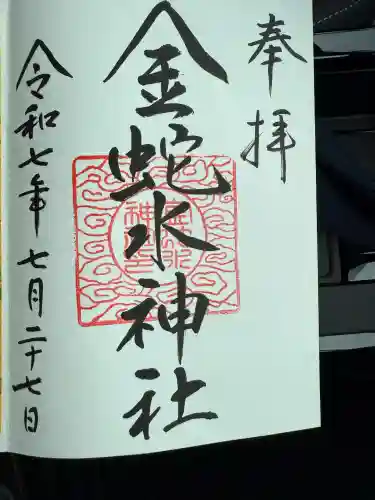 奉拝
金蛇水神社
令和七年七月二十七日